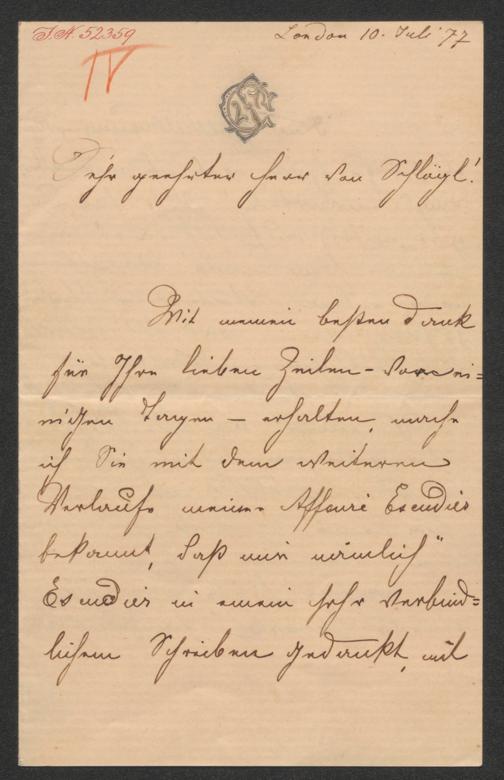 I.N. 52359
London 10. Juli 77
IV
Sehr geehrter Herr von Schlögl!
Mit meinem besten Dank
für Ihre lieben Zeilen – vor ei=
nigen Tagen – erhalten, mache
ich Sie mit dem weiteren
Verlaufe meiner Affaire Escudier
bekannt, daß mir nämlich
Escudier in einem sehr verbind=
lichem Schreiben gedankt, mit